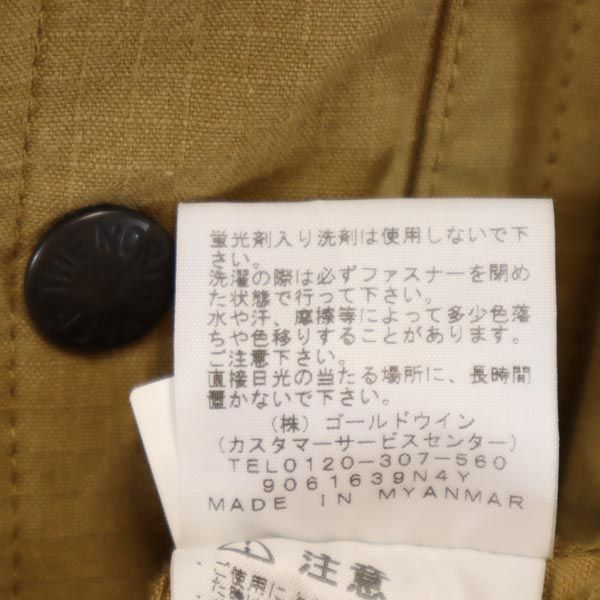 THE NOR
蛍光剤入り洗剤は使用しないで下
さい。
洗濯の際は必ずファスナーを閉め
た状態で行って下さい。
水や汗、摩擦等によって多少色落
ちや色移りすることがあります。
ご注意下さい。
直接日光の当たる場所に、長時間
置かないで下さい。
(株) ゴールドウイン
(カスタマーサービスセンター)
TEL0120-307-560
9061639N4Y
MADE IN MYANMAR
注意
使用に